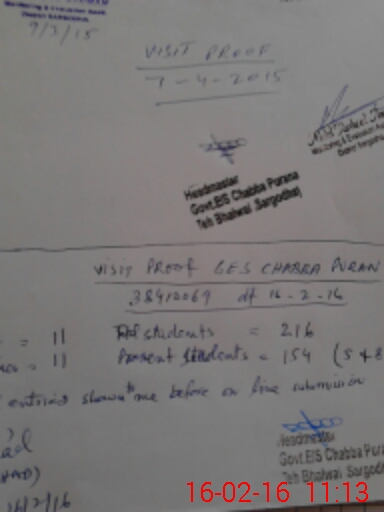 Monitoring & Evaluation
District SARGODHA
9/3/15
VISIT PROOF
7-4-2015
Monitoring & Evaluation
District Sargodha
Headmaster
Govt.E/S Chabba Purana
Teh Bhalwal Sargodha
VISIT PROOF G.E.S CHABBA PURAN
38410069 dt 16-2-16
= 11 students = 216
= 11 Present Students = 154 (5 & 8
entries shown to me before on line submission
16/2/16
Headmaster
Govt.E/S Chabba Pura
Teh Bhalwal Sargod
16-02-16 11:13